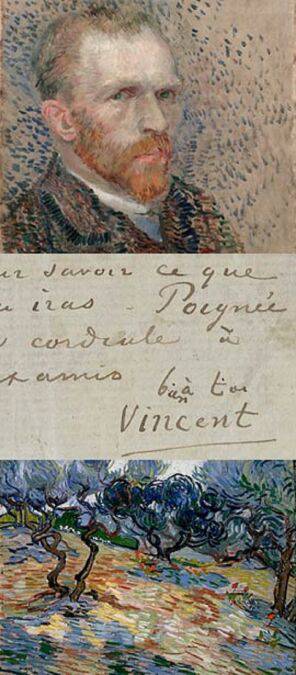 ur savoir ce que
u iras - Poignée
cordiale à
x amis à toi
Vincent